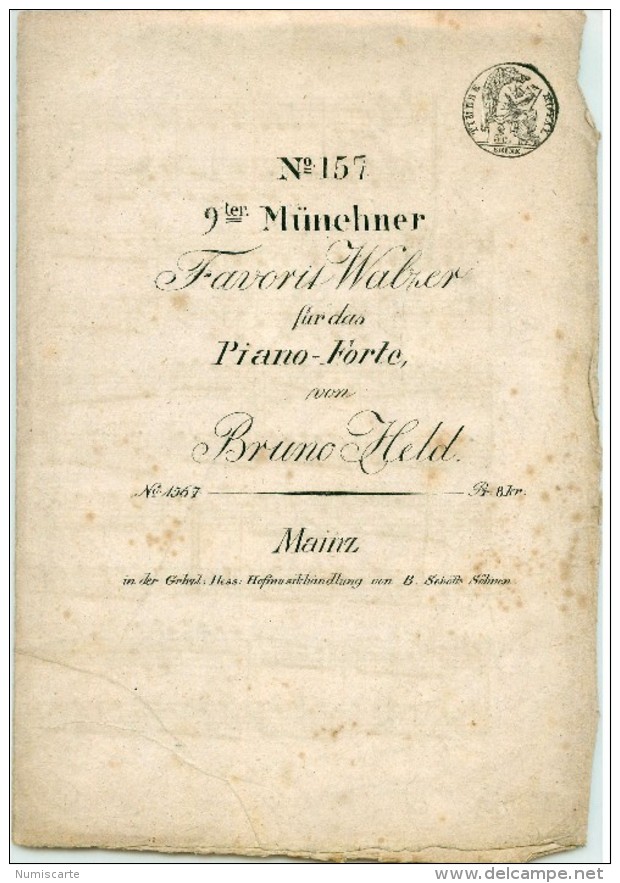 TIMBRE ROYAL
SEINE
Nº 157
9ter Münchner
Favorit Walzer
für das
Piano-Forte,
von
Bruno Held.
Nº 1567 Pr. 8 kr.
Mainz
in der Grhzl: Hess: Hofmusikhandlung von B. Schott's Söhnen
Numiscarte
delcampe.net